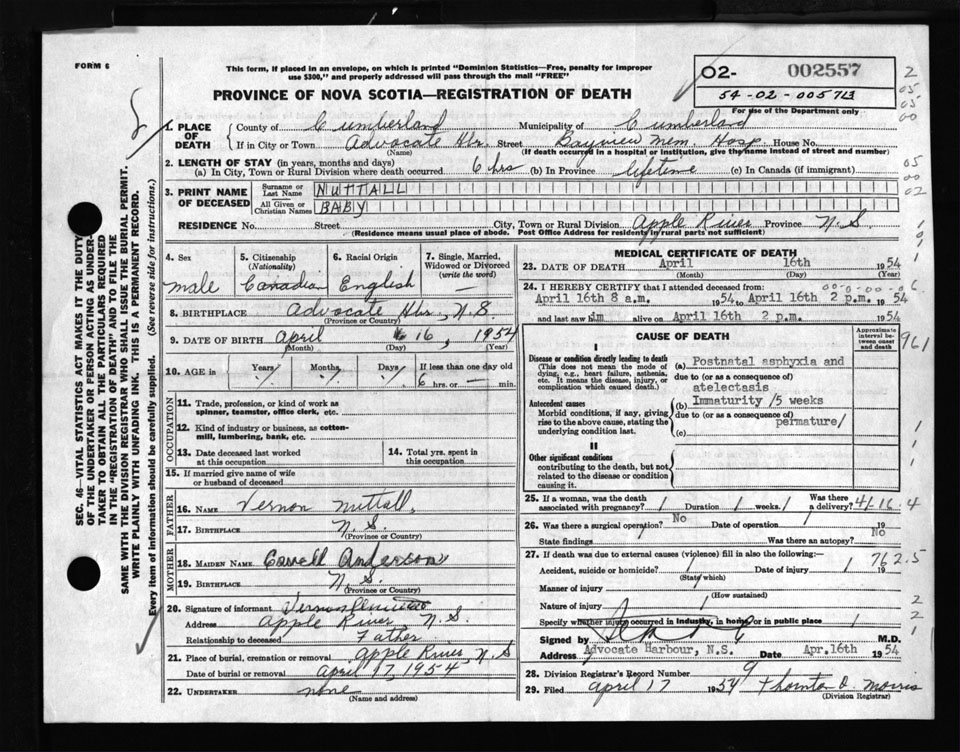 FORM 6
This form, if placed in an envelope, on which is printed "Dominion Statistics—Free, penalty for improper
use $300," and properly addressed will pass through the mail "FREE"
PROVINCE OF NOVA SCOTIA—REGISTRATION OF DEATH
O2- 002557
54-02-005713
For use of the Department only
2
05
05
00
1. PLACE OF DEATH
County of Cumberland Municipality of Cumberland
If in City or Town Advocate Hbr. Street Bayview Mem. Hosp. House No.
(Name) (If death occurred in a hospital or institution, give the name instead of street and number)
2. LENGTH OF STAY (in years, months and days)
(a) In City, Town or Rural Division where death occurred 6 hrs (b) In Province lifetime (c) In Canada (if immigrant)
05
00
02
3. PRINT NAME OF DECEASED
Surname or Last Name NUTTALL
All Given or Christian Names BABY
RESIDENCE No. Street City, Town or Rural Division Apple River Province N.S.
(Residence means usual place of abode. Post Office Address for residents in rural parts not sufficient)
4. Sex
male
5. Citizenship (Nationality)
Canadian
6. Racial Origin
English
7. Single, Married, Widowed or Divorced (write the word)
—
8. BIRTHPLACE Advocate Hbr, N.S.
(Province or Country)
9. DATE OF BIRTH April 16, 1954
(Month) (Day) (Year)
10. AGE in Years Months Days If less than one day old
6 hrs. or — min.
OCCUPATION
11. Trade, profession, or kind of work as
spinner, teamster, office clerk, etc.
12. Kind of industry or business, as cotton-
mill, lumbering, bank, etc.
13. Date deceased last worked
at this occupation
14. Total yrs. spent in
this occupation
15. If married give name of wife
or husband of deceased
FATHER
16. NAME Vernon Nuttall
17. BIRTHPLACE N.S.
(Province or Country)
MOTHER
18. MAIDEN NAME Anderson
19. BIRTHPLACE N.S.
(Province or Country)
20. Signature of informant
Address Apple River N.S.
Relationship to deceased Father
21. Place of burial, cremation or removal Apple River, N.S
Date of burial or removal April 17, 1954
22. UNDERTAKER none
(Name and address)
MEDICAL CERTIFICATE OF DEATH
23. DATE OF DEATH April 16th 1954
(Month) (Day) (Year)
24. I HEREBY CERTIFY that I attended deceased from:
April 16th 8 a.m. 1954 to April 16th 2 p.m. 1954
and last saw him alive on April 16th 2 p.m. 1954
CAUSE OF DEATH
Approximate interval between onset and death
I
Disease or condition directly leading to death
(This does not mean the mode of
dying, e.g., heart failure, asthenia,
etc. It means the disease, injury, or
complication which caused death.)
(a) Postnatal asphyxia and
due to (or as a consequence of)
atelectasis
Antecedent causes
Morbid conditions, if any, giving
rise to the above cause, stating the
underlying condition last.
(b) Immaturity /5 weeks
due to (or as a consequence of)
permature/
(c)
II
Other significant conditions
contributing to the death, but not
related to the disease or condition
causing it.
961
25. If a woman, was the death
associated with pregnancy? Duration weeks Was there
a delivery?
4-16.4
26. Was there a surgical operation? No Date of operation 19
State findings Was there an autopsy? No
27. If death was due to external causes (violence) fill in also the following:—
762.5
Accident, suicide or homicide? Date of injury 19
(State which)
Manner of injury
(How sustained)
Nature of injury
Specify whether injury occurred in industry, in home or in public place
Signed by M.D.
Address Advocate Harbour, N.S. Date Apr.16th 1954
28. Division Registrar's Record Number 9
29. Filed April 17 1954 Thornton D. Morris
(Division Registrar)
SEC. 46—VITAL STATISTICS ACT MAKES IT THE DUTY
OF THE UNDERTAKER OR PERSON ACTING AS UNDER-
TAKER TO OBTAIN ALL THE PARTICULARS REQUIRED
IN THE "REGISTRATION OF DEATH" AND TO FILE THE
SAME WITH THE DIVISION REGISTRAR WHO SHALL ISSUE THE BURIAL PERMIT.
WRITE PLAINLY WITH UNFADING INK. THIS IS A PERMANENT RECORD.
Every item of information should be carefully supplied. (See reverse side for instructions.)